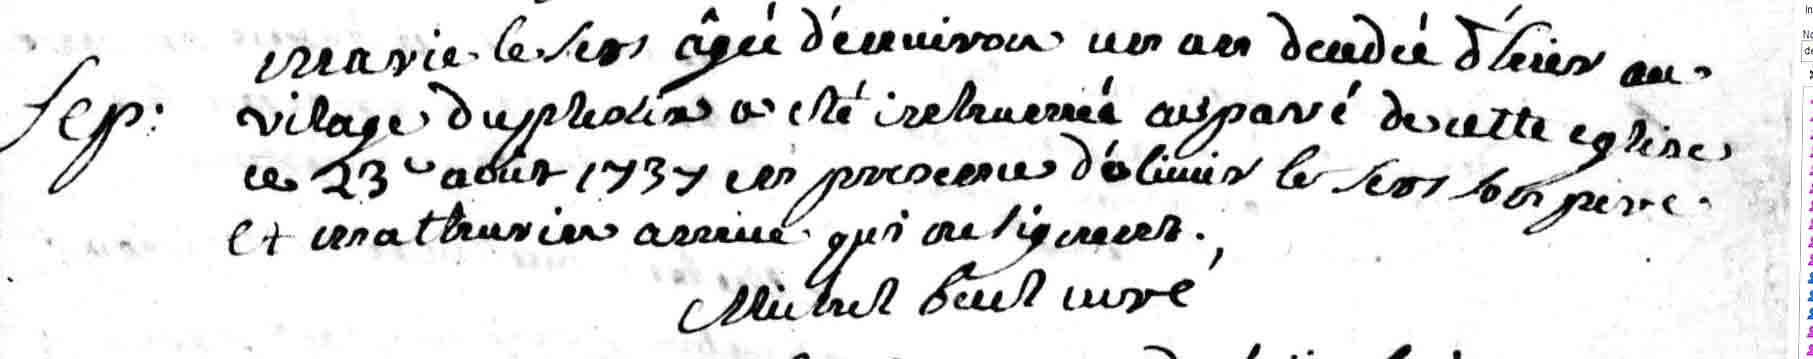 marie le sers âgée d'environ un an decedée d'hier au
Sep: vilage du plesix a esté inhumée au pavé de cette eglise
ce 23e août 1737 en presence d'olivier le sers son pere
et mathurin qui ne signent.
Michel curé